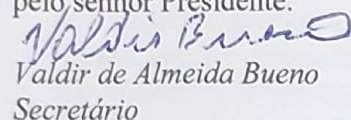 pelo senhor Presidente.
Valdir Bueno
Valdir de Almeida Bueno
Secretário